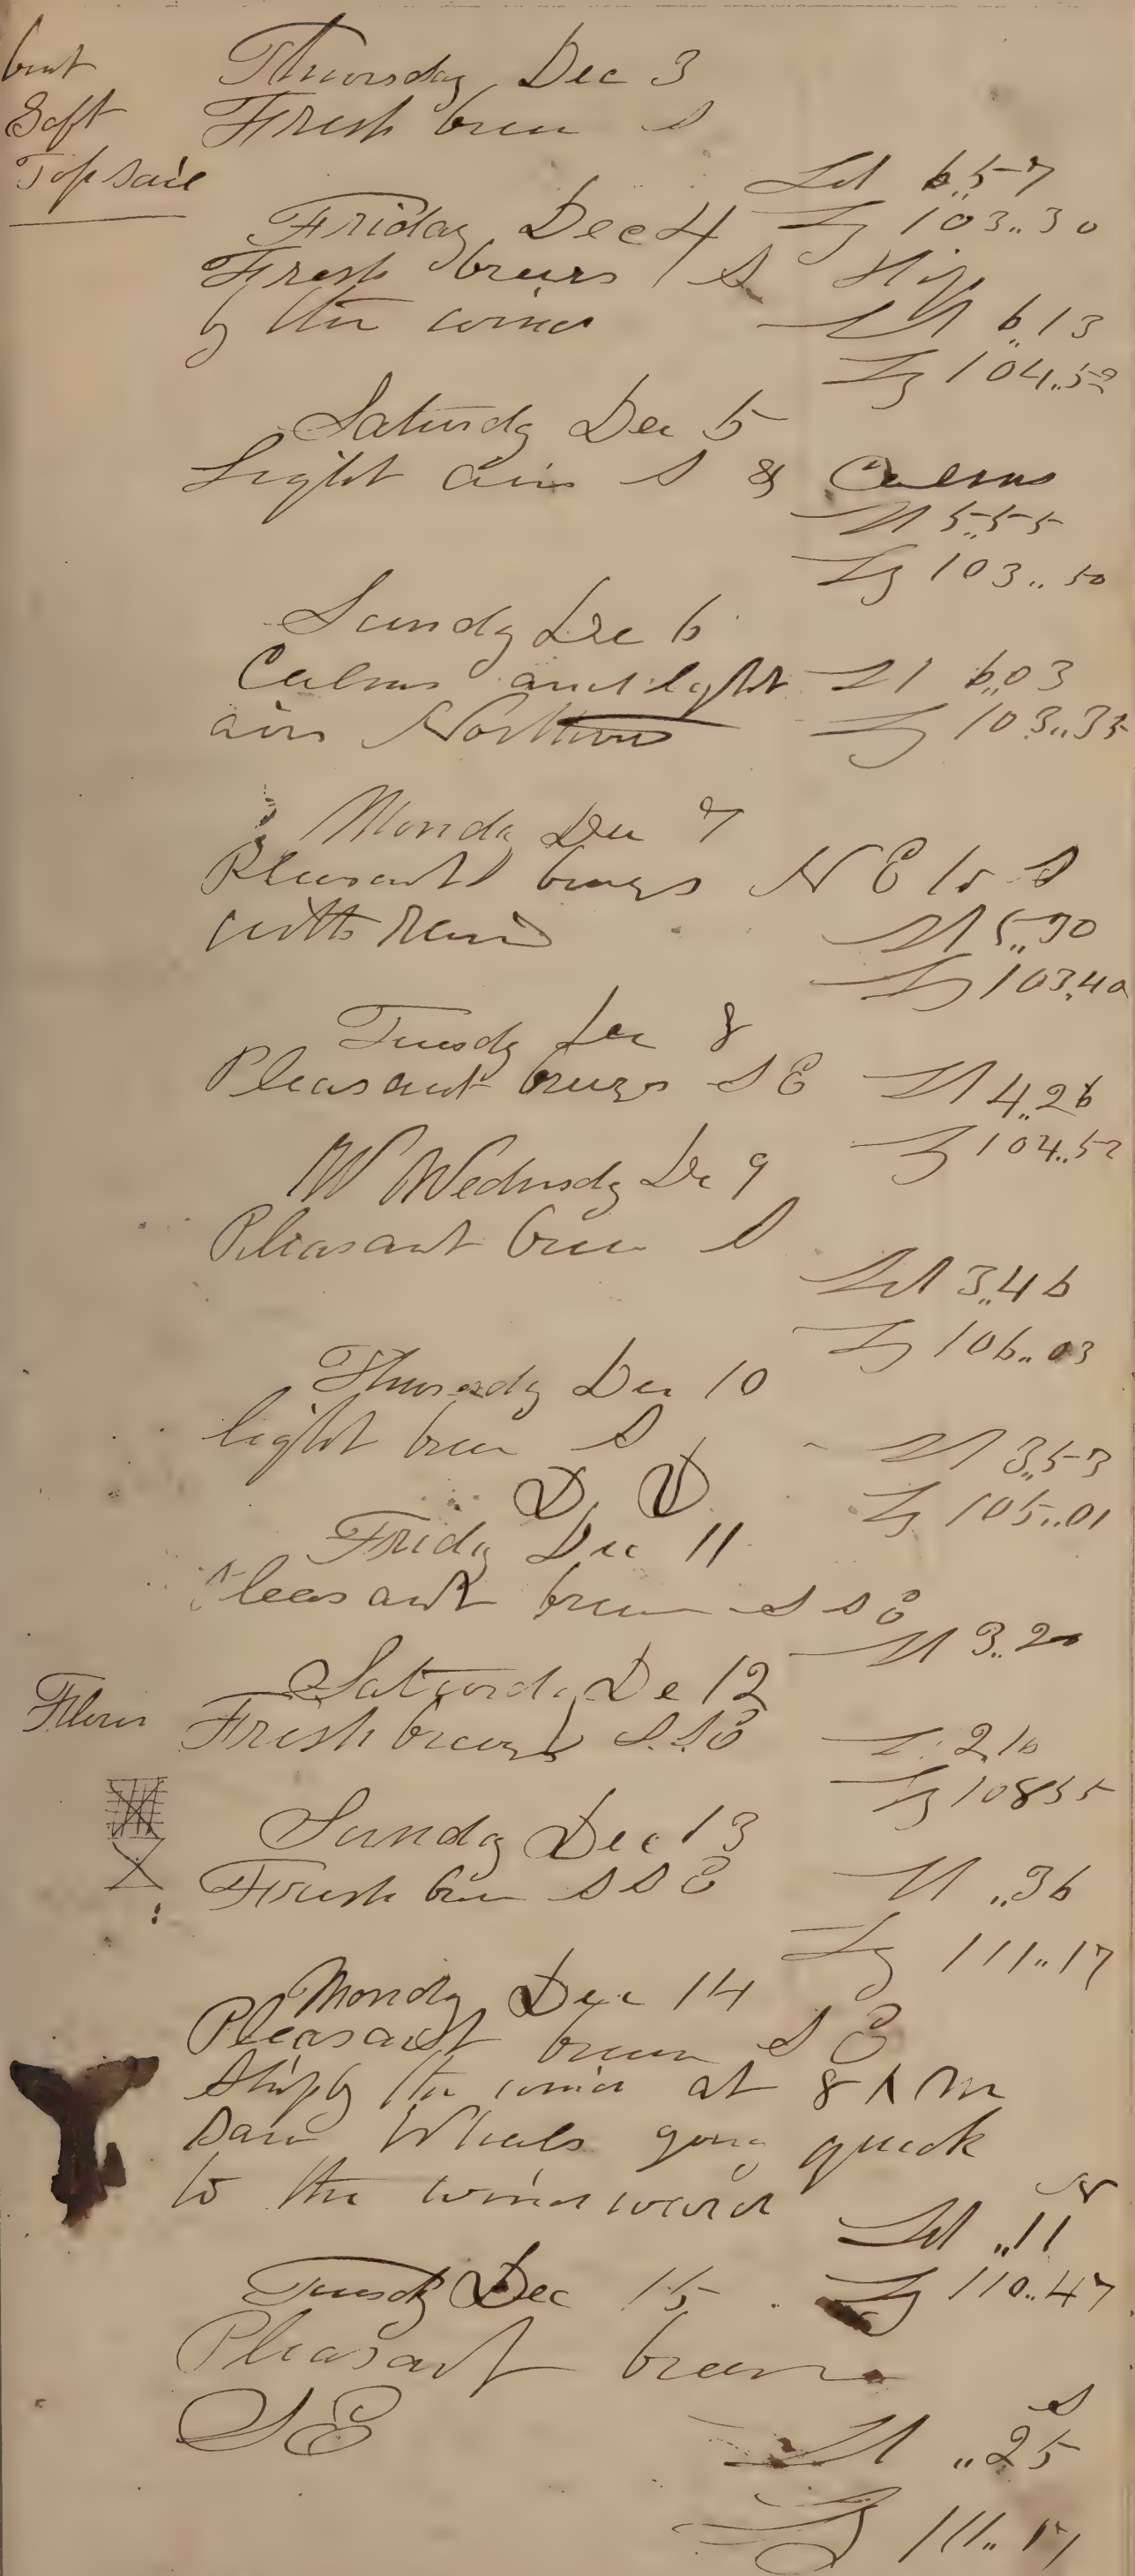 bent
Soft
Topsail
Thuorsday Dec 3
Fresh breen S
Lat 6..57
Lg 103..30
Friday Dec 4
Fresh breezs S Ship
by the wind
Lat 6..13
Lg 104..52
Saturdy Dec 5
Light airs S & Calms
Lat 5..55
Lg 103..50
Sundy Dec 6
Calms and light
airs Northward
Lat 6..03
Lg 103..35
Monda Dec 7
Pleasant breezs N E to S
with Rain
Lat 5..30
Lg 103..40
Tuesdy Dec 8
Pleasant breezs S E
Lat 4..26
Lg 104..52
W Wednsdy De 9
Pleasant breen S
Lat 3..46
Lg 106..03
Thursdy Dec 10
light breen S
Lat 3..53
Lg 105..01
D. D
Fridy Dec 11
Pleasant breen S S E
Lat 3..20
Saturda De 12
Flour
Fresh breezs S.S.E
L: 2,10
Lg 108 55
Sundag Dec 13
Fresh breen S S E
Lat ..36
Lg 111..17
Mondy Dec 14
Pleasant breen S E
Ship by the wind at 8 A M
Saw Whals going quick
to the windward
N
Lat ..11
Tuesdy Dec 15
Lg 110..47
Pleasant breen
S E
S
Lat ..25
Lg 111..17